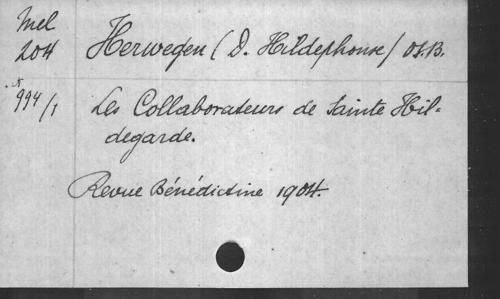 Mel
204
Herwegen (D. Hildephonse) OS.B.
994/1
Les Collaborateurs de Sainte Hil-
degarde.
Revue Bénédictine 1904.